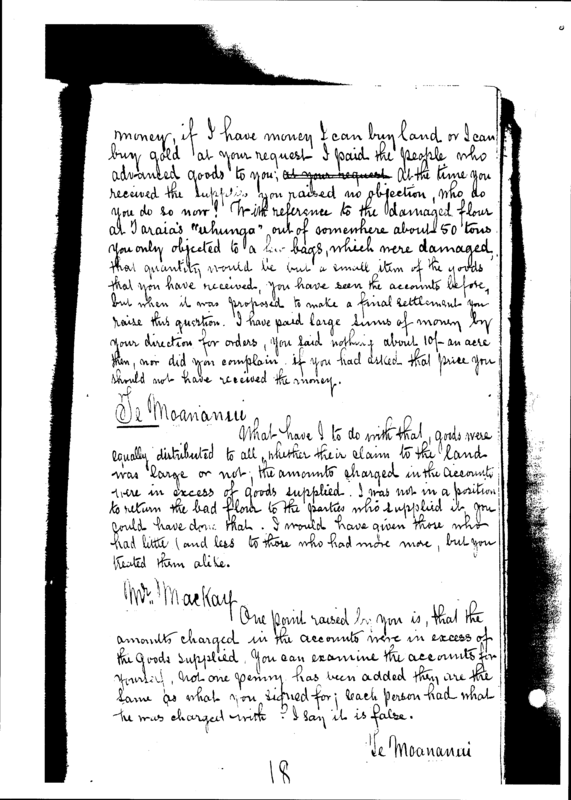 money, if I have money I can buy land or I can
buy gold at your request I paid the people who
advanced goods to you; at your request At the time you
received the supplies you raised no objection, who do
you do so now? With reference to the damaged flour
at Taraia's "uhunga" out of somewhere about 50 tons
you only objected to a few bags, which were damaged,
that quantity would be but a small item of the goods
that you have received, you have seen the accounts before,
but when it was proposed to make a final settlement you
raise this question. I have paid large sums of money by
your direction for orders, you said nothing about 10/- an acre
then, nor did you complain. if you had asked that price you
should not have received the money.
Te Moananui
What have I to do with that, goods were
equally distributed to all, whether their claim to the land
was large or not, the amounts charged in the accounts
were in excess of goods supplied. I was not in a position
to return the bad flour to the parties who supplied it you
could have done that. I would have given those who
had little land less to those who had more more, but you
treated them alike.
Mr. Mackay
One point raised by you is, that the
amounts charged in the accounts were in excess of
the goods supplied. You can examine the accounts for
yourself, not one penny has been added they are the
same as what you signed for; each person had what
he was charged with? I say it is false.
Te Moananui
18